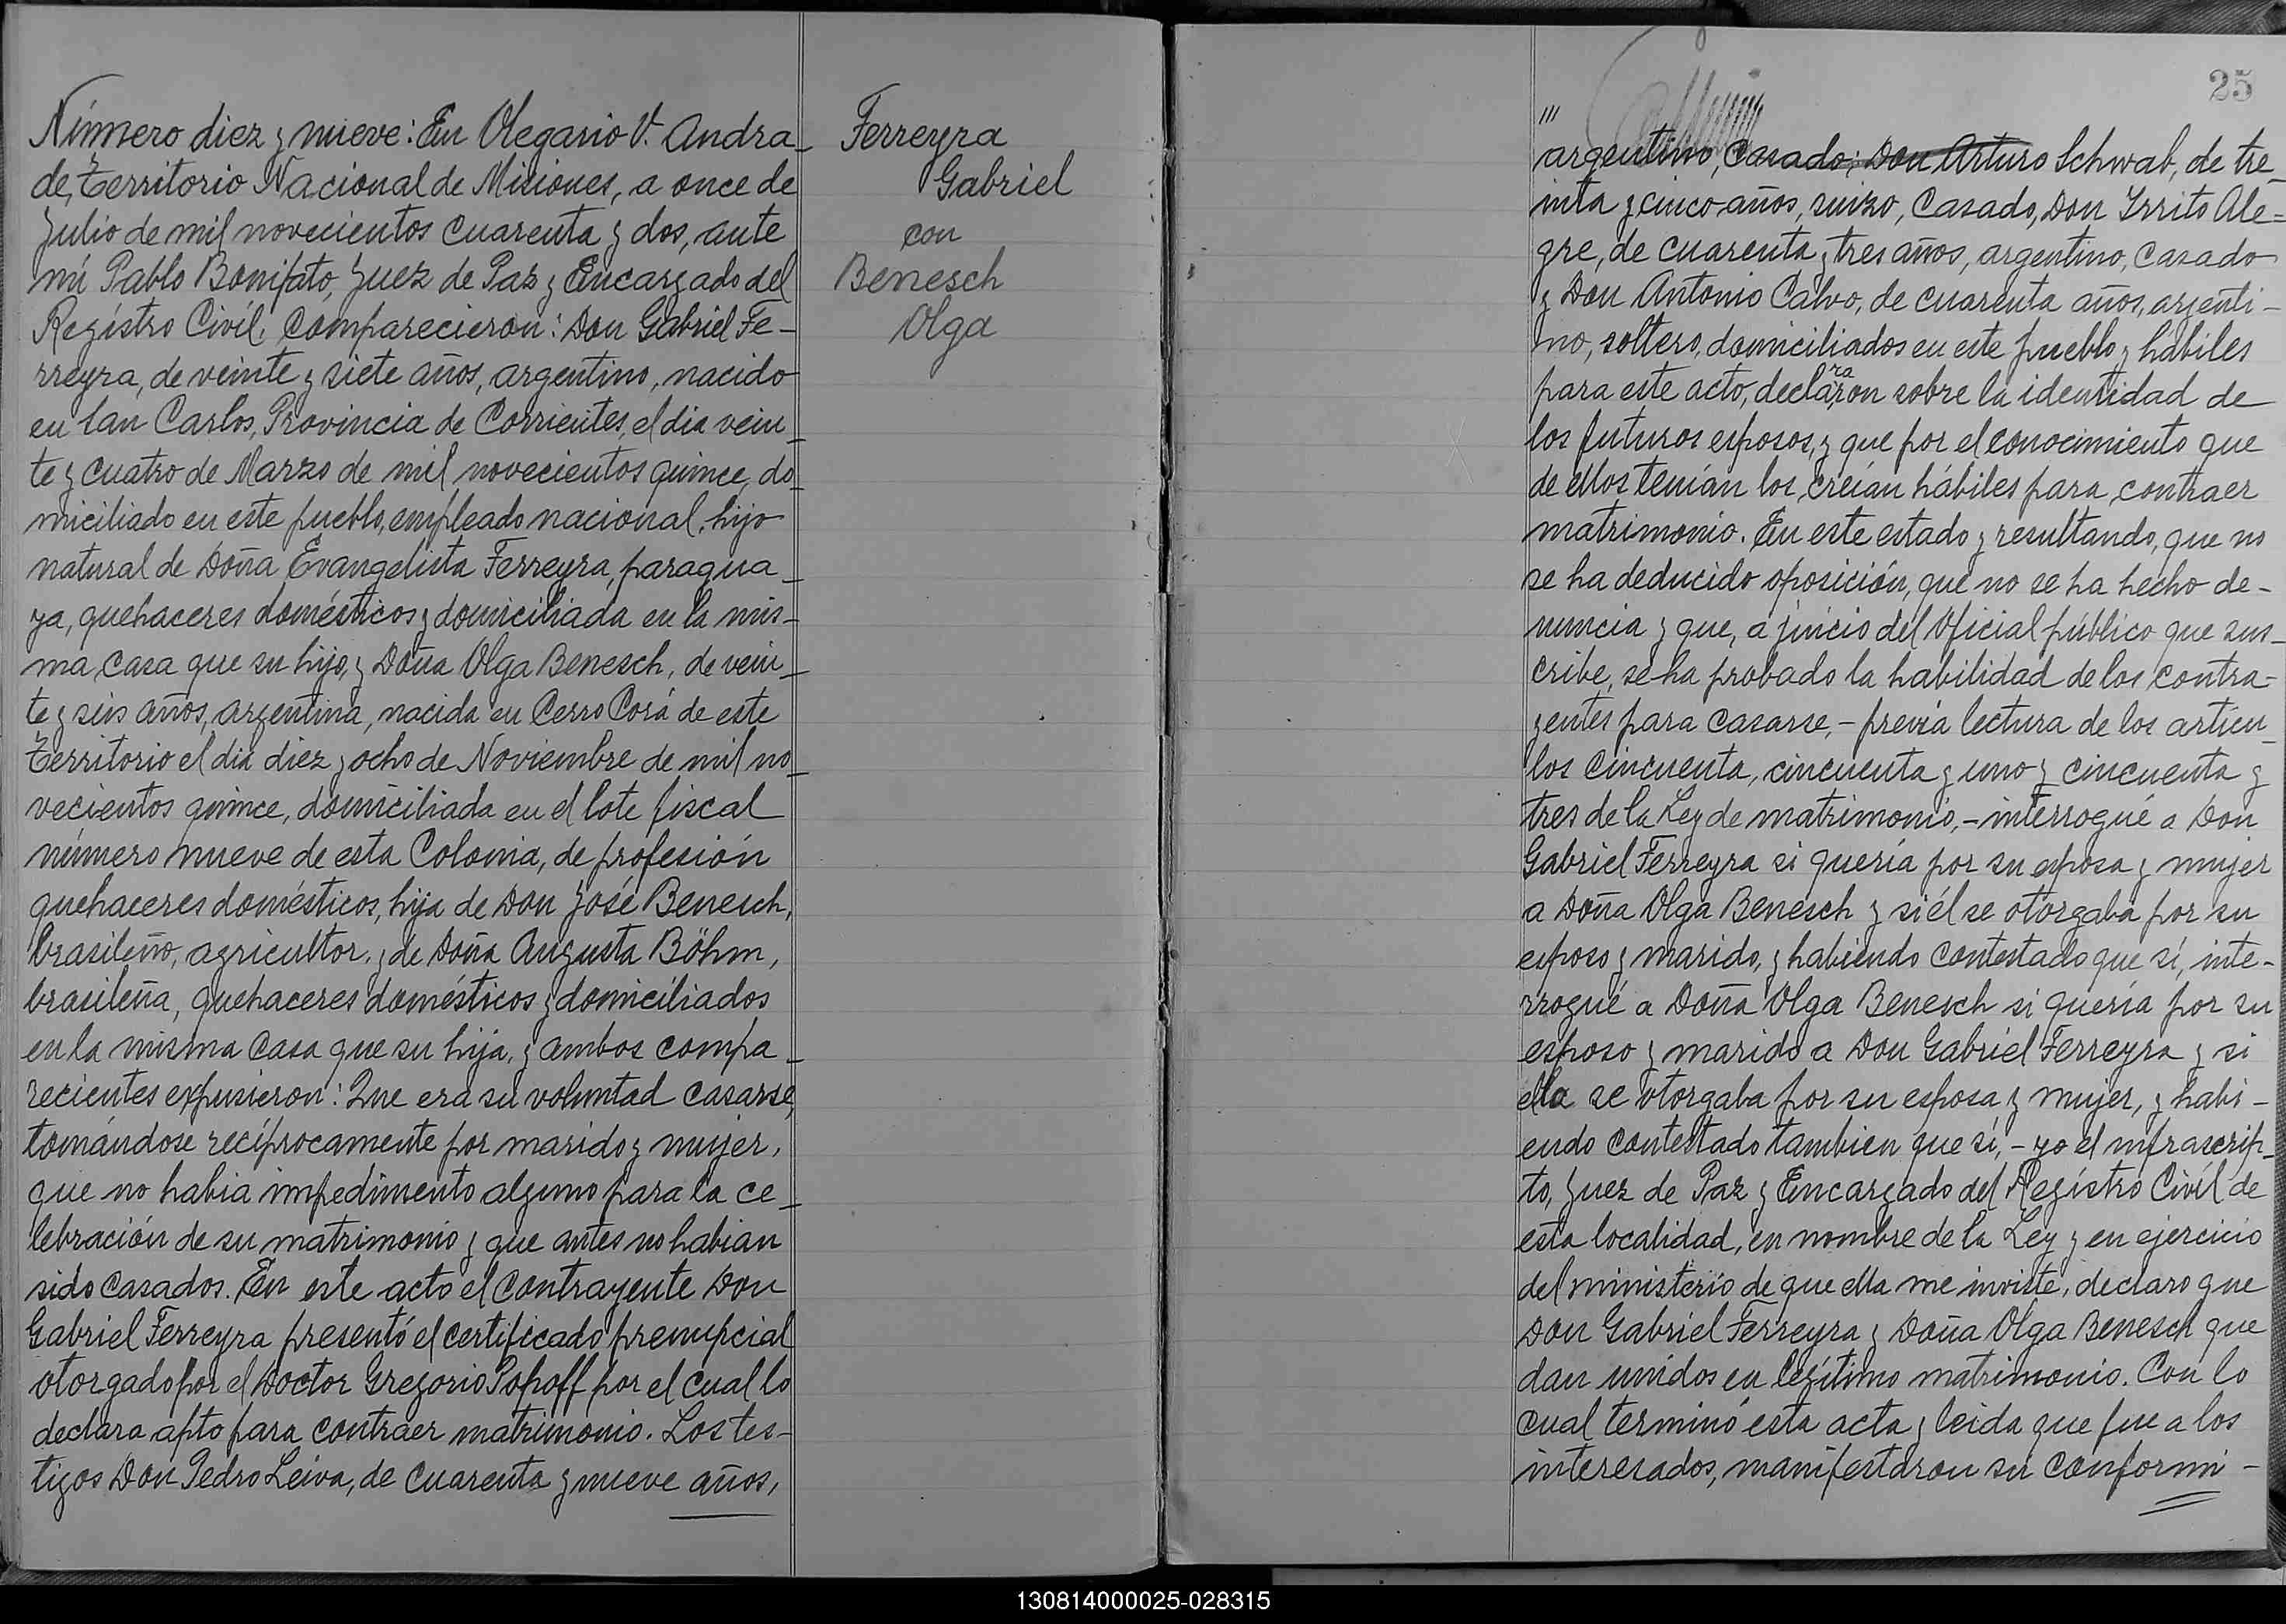 Número diez y nueve: En Olegario V. Andra-
de, Territorio Nacional de Misiones, a once de
Julio de mil novecientos cuarenta y dos, ante
mí Pablo Bonifato, Juez de Paz y Encargado del
Registro Civil, comparecieron: Don Gabriel Fe-
rreyra, de veinte y siete años, argentino, nacido
en San Carlos, Provincia de Corrientes, el dia vein-
te y cuatro de Marzo de mil novecientos quince, do-
miciliado en este pueblo, empleado nacional, hijo
natural de Doña Evangelista Ferreyra, paragua-
ya, quehaceres domésticos y domiciliada en la mis-
ma casa que su hijo, y Doña Olga Benesch, de vein-
te y seis años, argentina, nacida en Cerro Corá de este
Territorio el dia diez y ocho de Noviembre de mil no-
vecientos quince, domiciliada en el lote fiscal
número nueve de esta Colonia, de profesión
quehaceres domésticos, hija de Don José Benesch,
brasileño, agricultor, y de Doña Augusta Böhm,
brasileña, quehaceres domésticos y domiciliados
en la misma casa que su hija, y ambos compa-
recientes expusieron: Que era su voluntad casarse,
tomándose recíprocamente por marido y mujer,
que no habia impedimento alguno para la ce-
lebración de su matrimonio y que antes no habian
sido casados. En este acto el contrayente Don
Gabriel Ferreyra presentó el certificado prenupcial
otorgado por el Doctor Gregorio Pohoff por el cual lo
declara apto para contraer matrimonio. Los tes-
tigos Don Pedro Leiva, de cuarenta y nueve años,
Ferreyra
Gabriel
con
Benesch
Olga
25
argentino, casado; Don Arturo Schwab, de tre-
inta y cinco años, suizo, casado, Don Irrito Ale=
gre, de cuarenta y tres años, argentino, casado
y Don Antonio Calvo, de cuarenta años, argenti-
no, soltero, domiciliados en este pueblo y hábiles
para este acto, declararon sobre la identidad de
los futuros esposos, y que por el conocimiento que
de ellos tenían los creían hábiles para contraer
matrimonio. En este estado y resultando, que no
se ha deducido oposición, que no se ha hecho de-
nuncia y que, a juicio del Oficial público que sus-
cribe, se ha probado la habilidad de los contra-
yentes para casarse,- previa lectura de los artícu-
los cincuenta, cincuenta y uno y cincuenta y
tres de la Ley de matrimonio,- interrogué a Don
Gabriel Ferreyra si quería por su esposa y mujer
a Doña Olga Benesch y si él se otorgaba por su
esposo y marido, y habiendo contestado que sí, inte-
rrogué a Doña Olga Benesch si quería por su
esposo y marido a Don Gabriel Ferreyra y si
ella se otorgaba por su esposa y mujer, y habi-
endo contestado tambien que sí,- yo el infrascrip-
to, Juez de Paz y Encargado del Registro Civil de
esta localidad, en nombre de la Ley y en ejercicio
del ministerio de que ella me inviste, declaro que
Don Gabriel Ferreyra y Doña Olga Benesch que
dan unidos en legítimo matrimonio. Con lo
cual terminó esta acta y leida que fue a los
interesados, manifestaron su conformi-
130814000025-028315